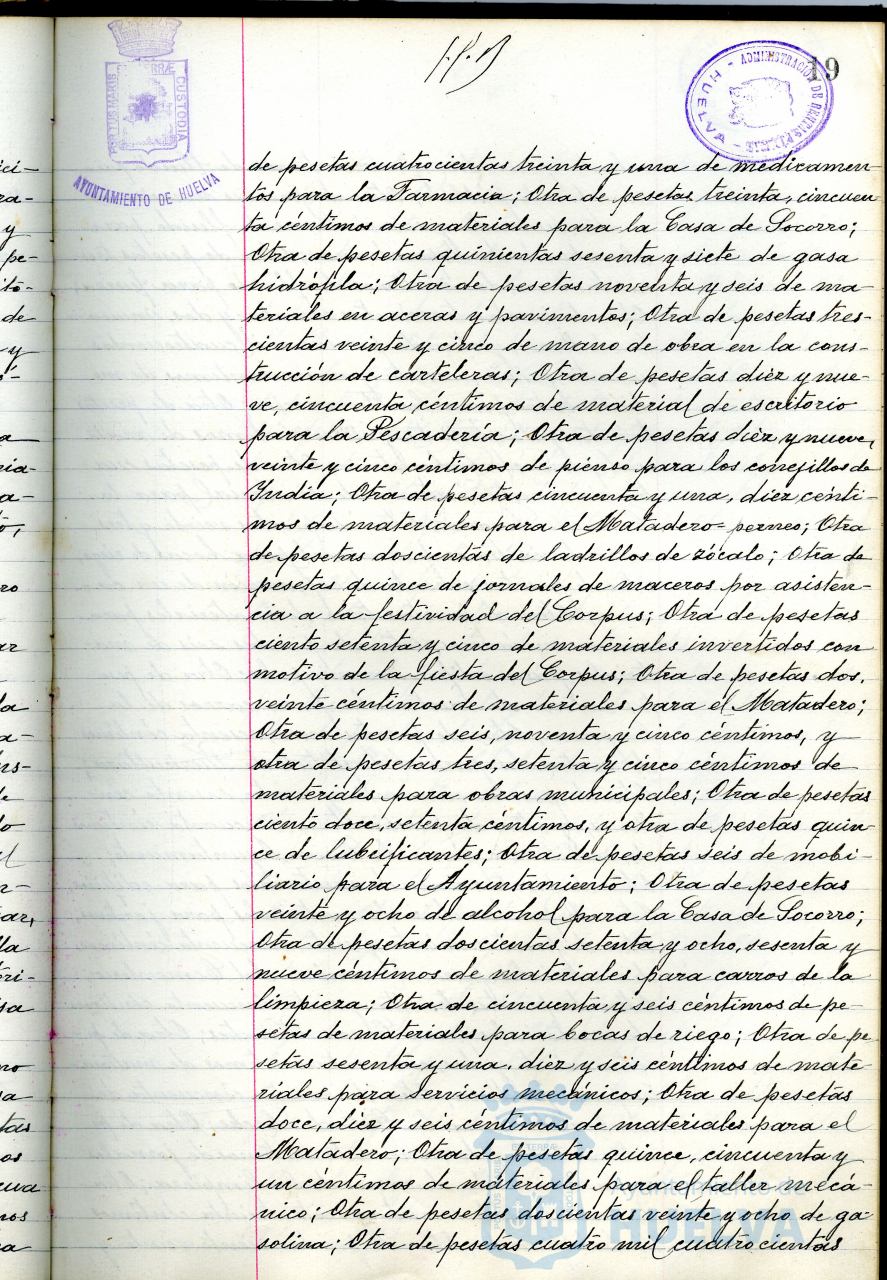 19
PORTUS MARIS
CUSTODIA
AYUNTAMIENTO DE HUELVA
HUELVA
de pesetas cuatrocientas treinta y una de medicamen
tos para la Farmacia; Otra de pesetas treinta, cincuen
ta céntimos de materiales para la Casa de Socorro;
Otra de pesetas quinientas sesenta y siete de gasa
hidrófila; Otra de pesetas noventa y seis de ma-
teriales en aceras y pavimentos; Otra de pesetas tres-
cientas veinte y cinco de mano de obra en la cons-
trucción de carteleras; Otra de pesetas diez y nue-
ve, cincuenta céntimos de material de escritorio
para la Pescadería; Otra de pesetas diez y nueve,
veinte y cinco céntimos de pienso para los conejillos de
India; Otra de pesetas cincuenta y una, diez cénti-
mos de materiales para el Matadero= perneo; Otra
de pesetas doscientas de ladrillos de zócalo; Otra de
pesetas quince de jornales de maceros por asisten-
cia a la festividad del Corpus; Otra de pesetas
ciento setenta y cinco de materiales invertidos con
motivo de la fiesta del Corpus; Otra de pesetas dos,
veinte céntimos de materiales para el Matadero;
Otra de pesetas seis, noventa y cinco céntimos, y
otra de pesetas tres, setenta y cinco céntimos de
materiales para obras municipales; Otra de pesetas
ciento doce, setenta céntimos, y otra de pesetas quin-
ce de lubrificantes; Otra de pesetas seis de mobi-
liario para el Ayuntamiento; Otra de pesetas
veinte y ocho de alcohol para la Casa de Socorro;
Otra de pesetas doscientas setenta y ocho, sesenta y
nueve céntimos de materiales para carros de la
limpieza; Otra de cincuenta y seis céntimos de pe-
setas de materiales para bocas de riego; Otra de pe
setas sesenta y una, diez y seis céntimos de mate-
riales para servicios mecánicos; Otra de pesetas
doce, diez y seis céntimos de materiales para el
Matadero; Otra de pesetas quince, cincuenta y
un céntimos de materiales para el taller mecá-
nico; Otra de pesetas doscientas veinte y ocho de ga-
solina; Otra de pesetas cuatro mil cuatrocientas
Ayuntamiento de
HUELVA